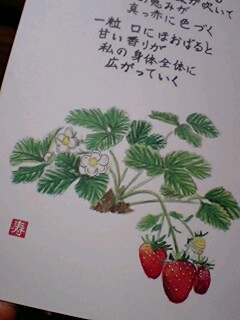 が吹いて
真っ赤に色づく
一粒 口にほおばると
甘い香りが
私の身体全体に
広がっていく
寿